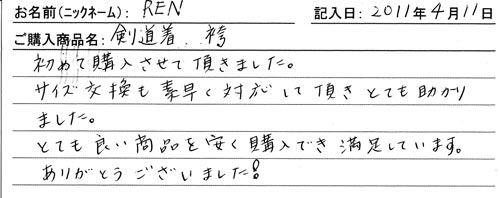 お名前(ニックネーム): REN 記入日: 2011年4月11日
ご購入商品名: 剣道着、袴
初めて購入させて頂きました。
サイズ交換も素早く対応して頂きとても助かり
ました。
とても良い商品を安く購入でき満足しています。
ありがとうございました!